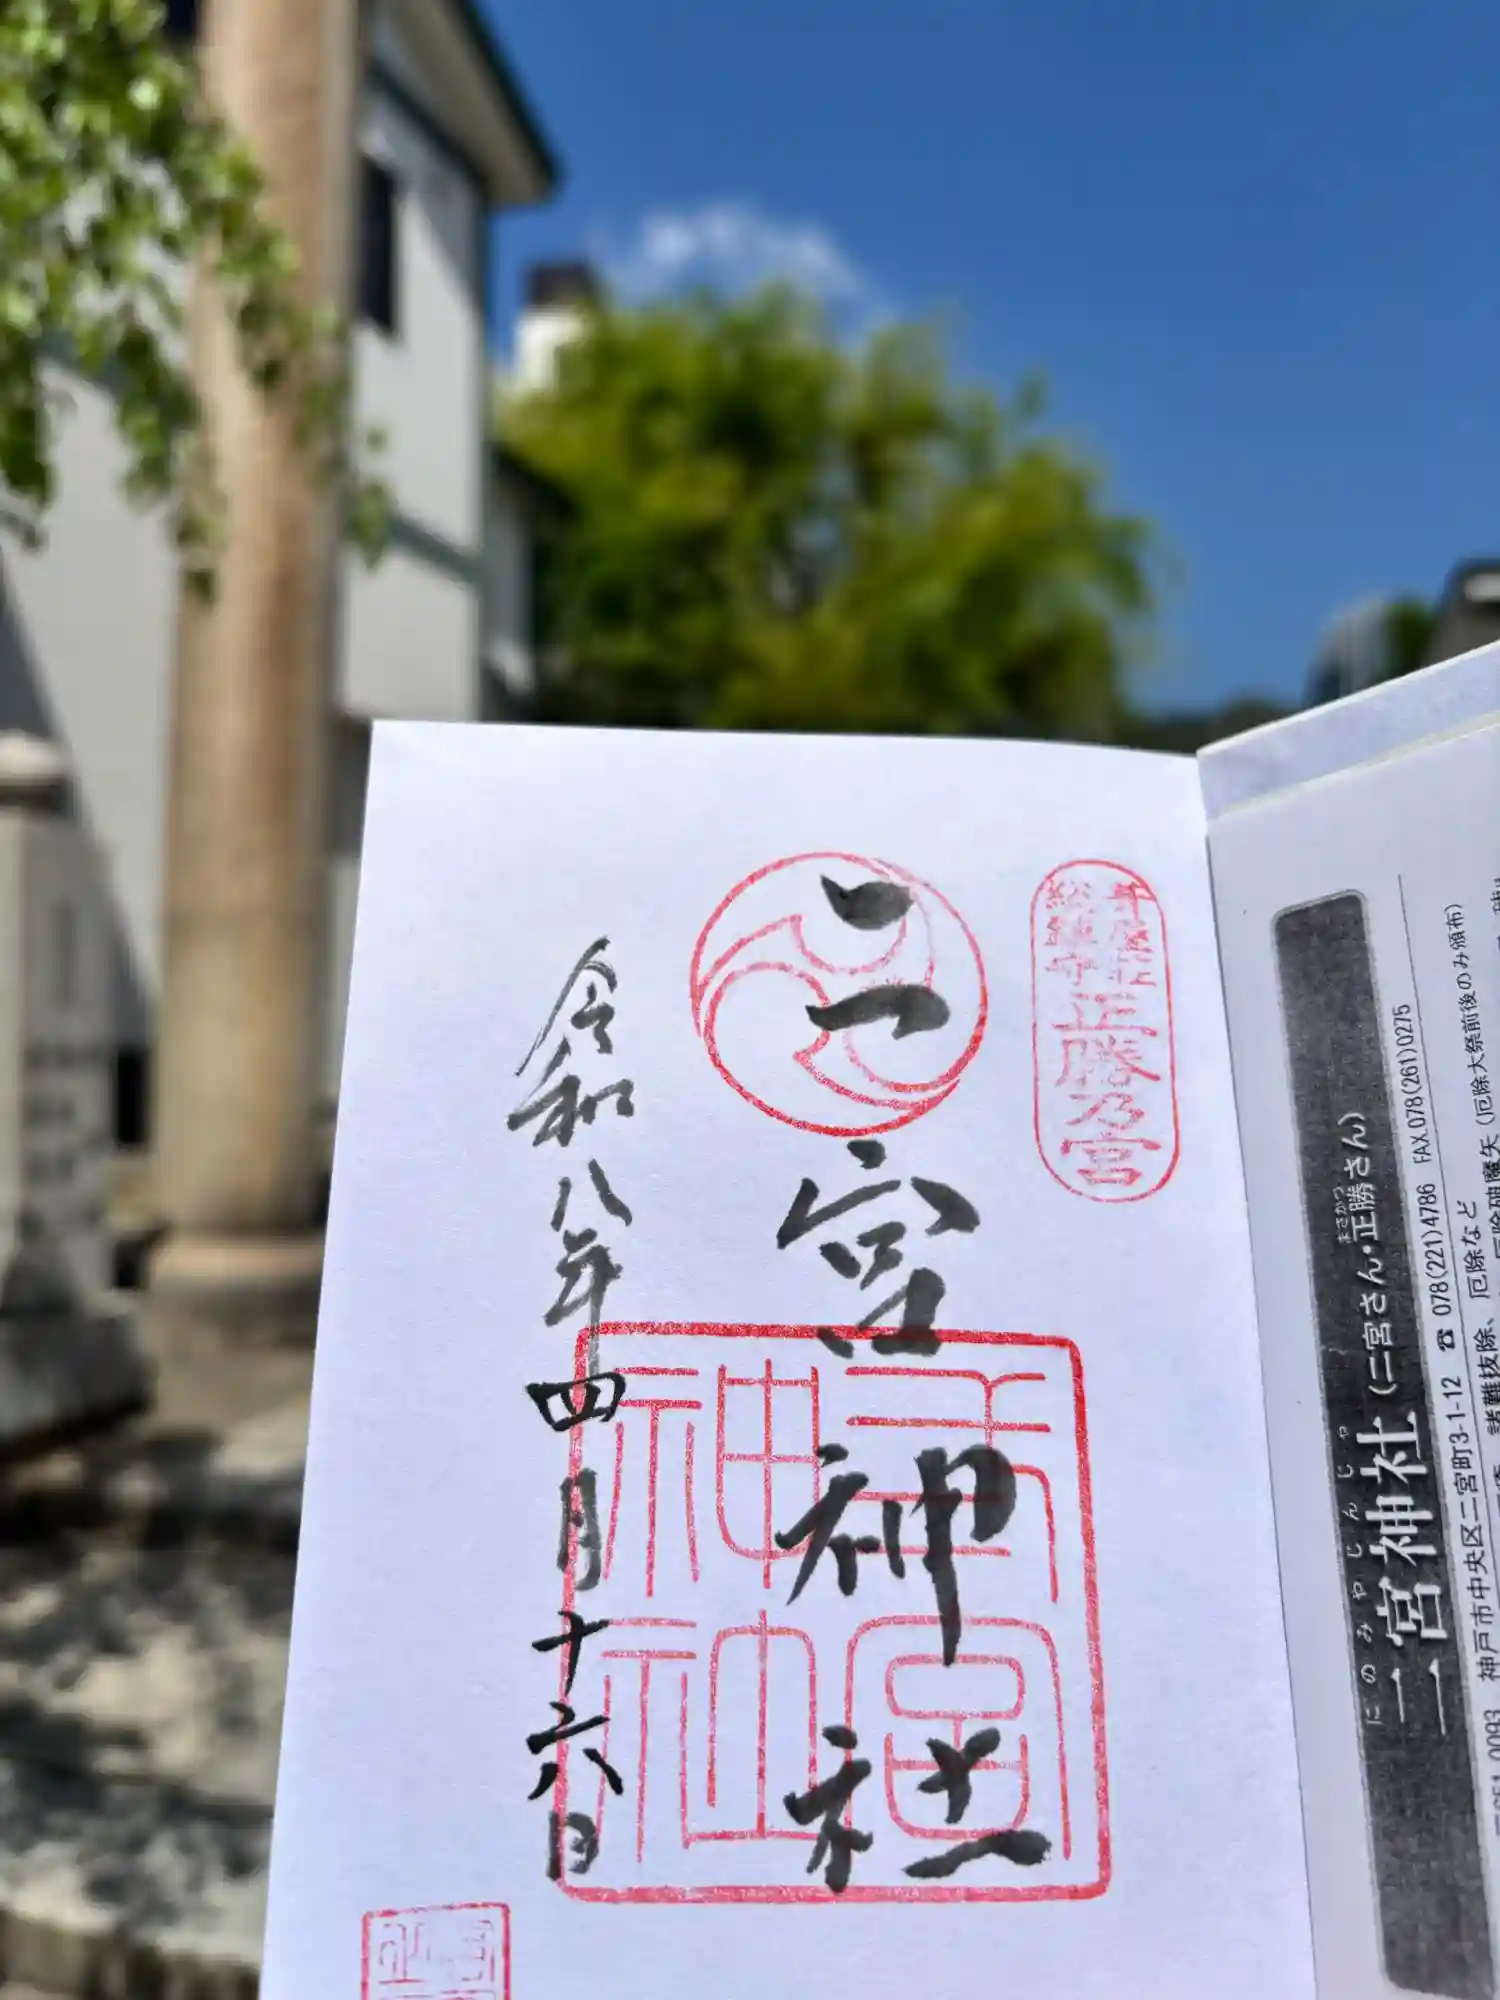 二宮神社
令和八年四月十六日
正勝乃宮
二宮神社
にのみやじんじゃ
二宮神社(二宮さん・正勝さん)
まさかつ
神戸市中央区二宮町3-1-12 ☎ 078(221)4786 FAX.078(261)0275
諸難抜除、厄除など
厄除破魔矢(厄除大祭前後のみ頒布)